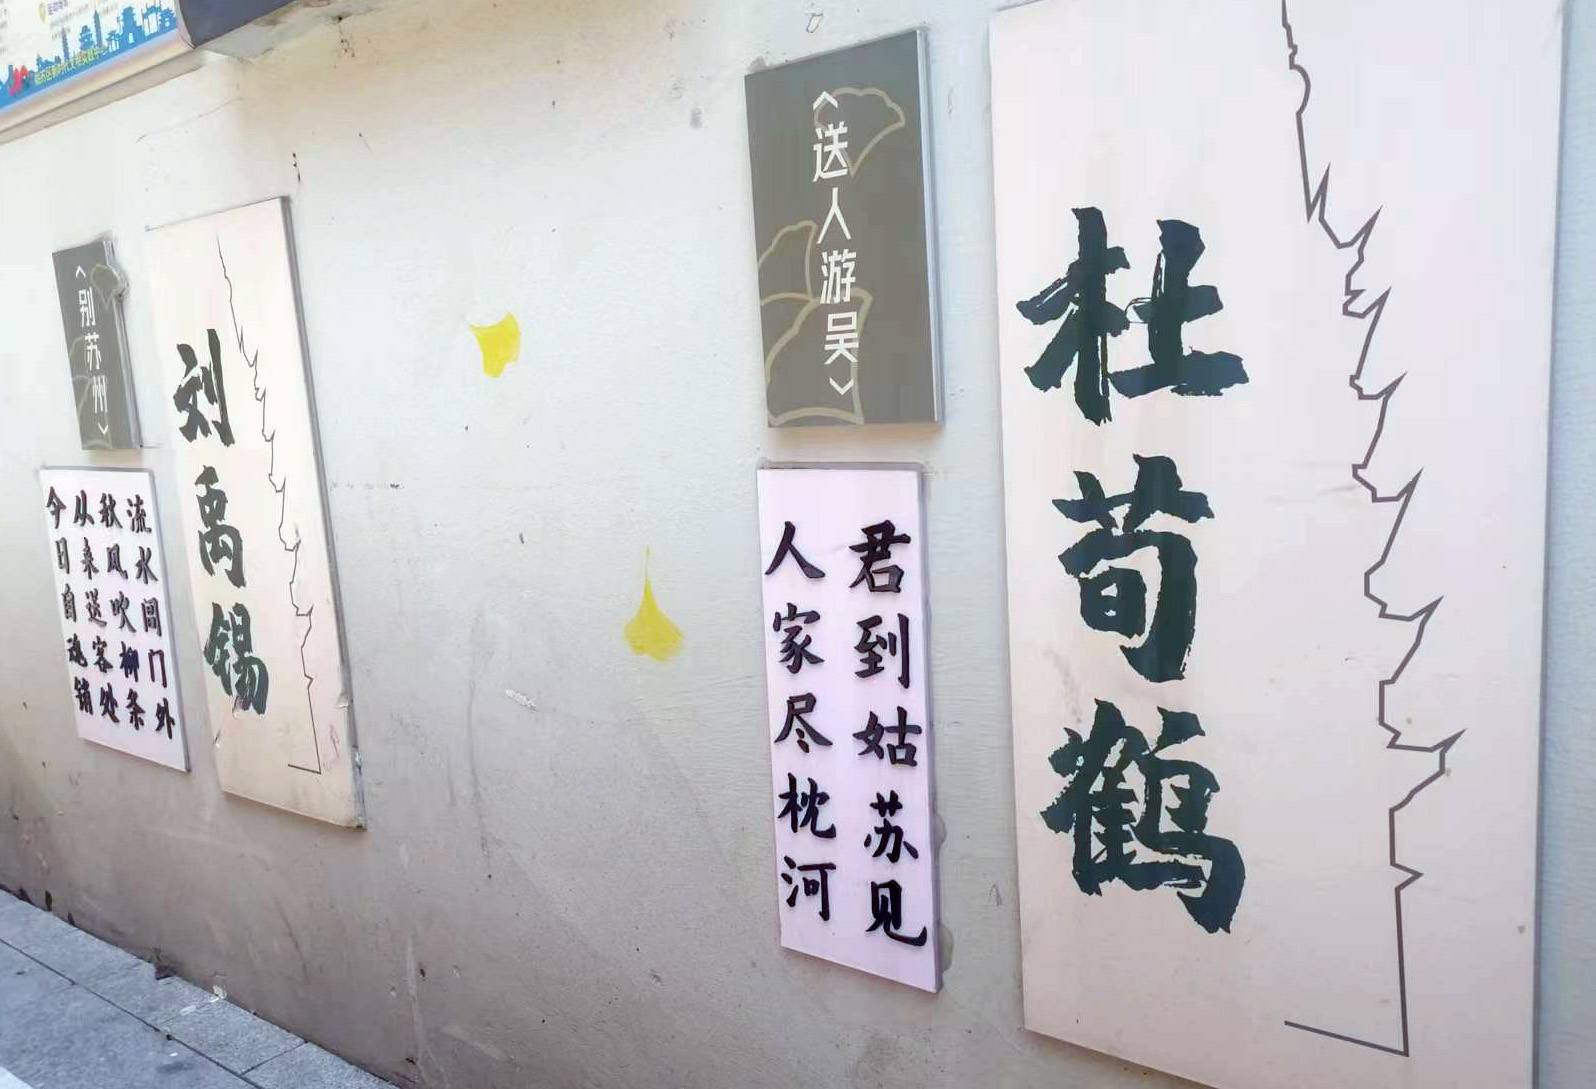 杜荀鹤
《送人游吴》
君到姑苏见
人家尽枕河
刘禹锡
《别苏州》
流水阊门外
秋风吹柳条
从来送客处
今日自魂销